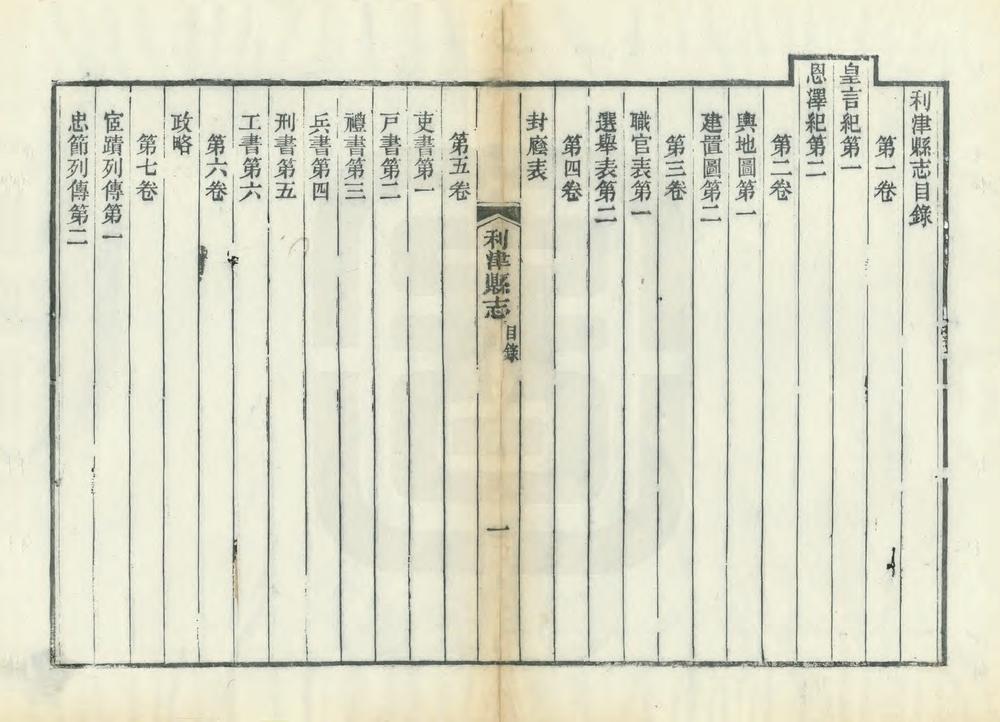 利津縣志目錄
第一卷
皇言紀第一
恩澤紀第二
第二卷
輿地圖第一
建置圖第二
第三卷
職官表第一
選舉表第二
第四卷
封廕表
利津縣志
目錄
一
第五卷
吏書第一
戸書第二
禮書第三
兵書第四
刑書第五
工書第六
第六卷
政略
第七卷
宦蹟列傳第一
忠節列傳第二